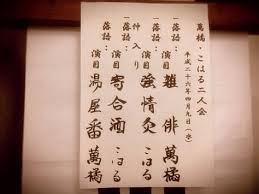 萬橘・こはる二人会
平成二十六年四月九日（水）
一落語 演目 雑俳 萬橘
一落語 演目 強情灸 こはる
仲入り
一落語 演目 寄合酒 こはる
一落語 演目 湯屋番 萬橘